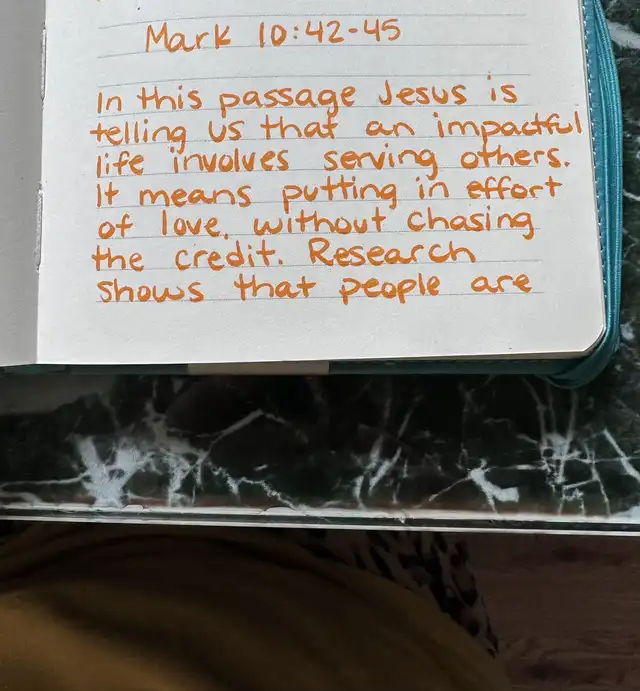 Mark 10:42-45
In this passage Jesus is
telling us that an impactful
life involves serving others.
It means putting in effort
of love, without chasing
the credit. Research
shows that people are